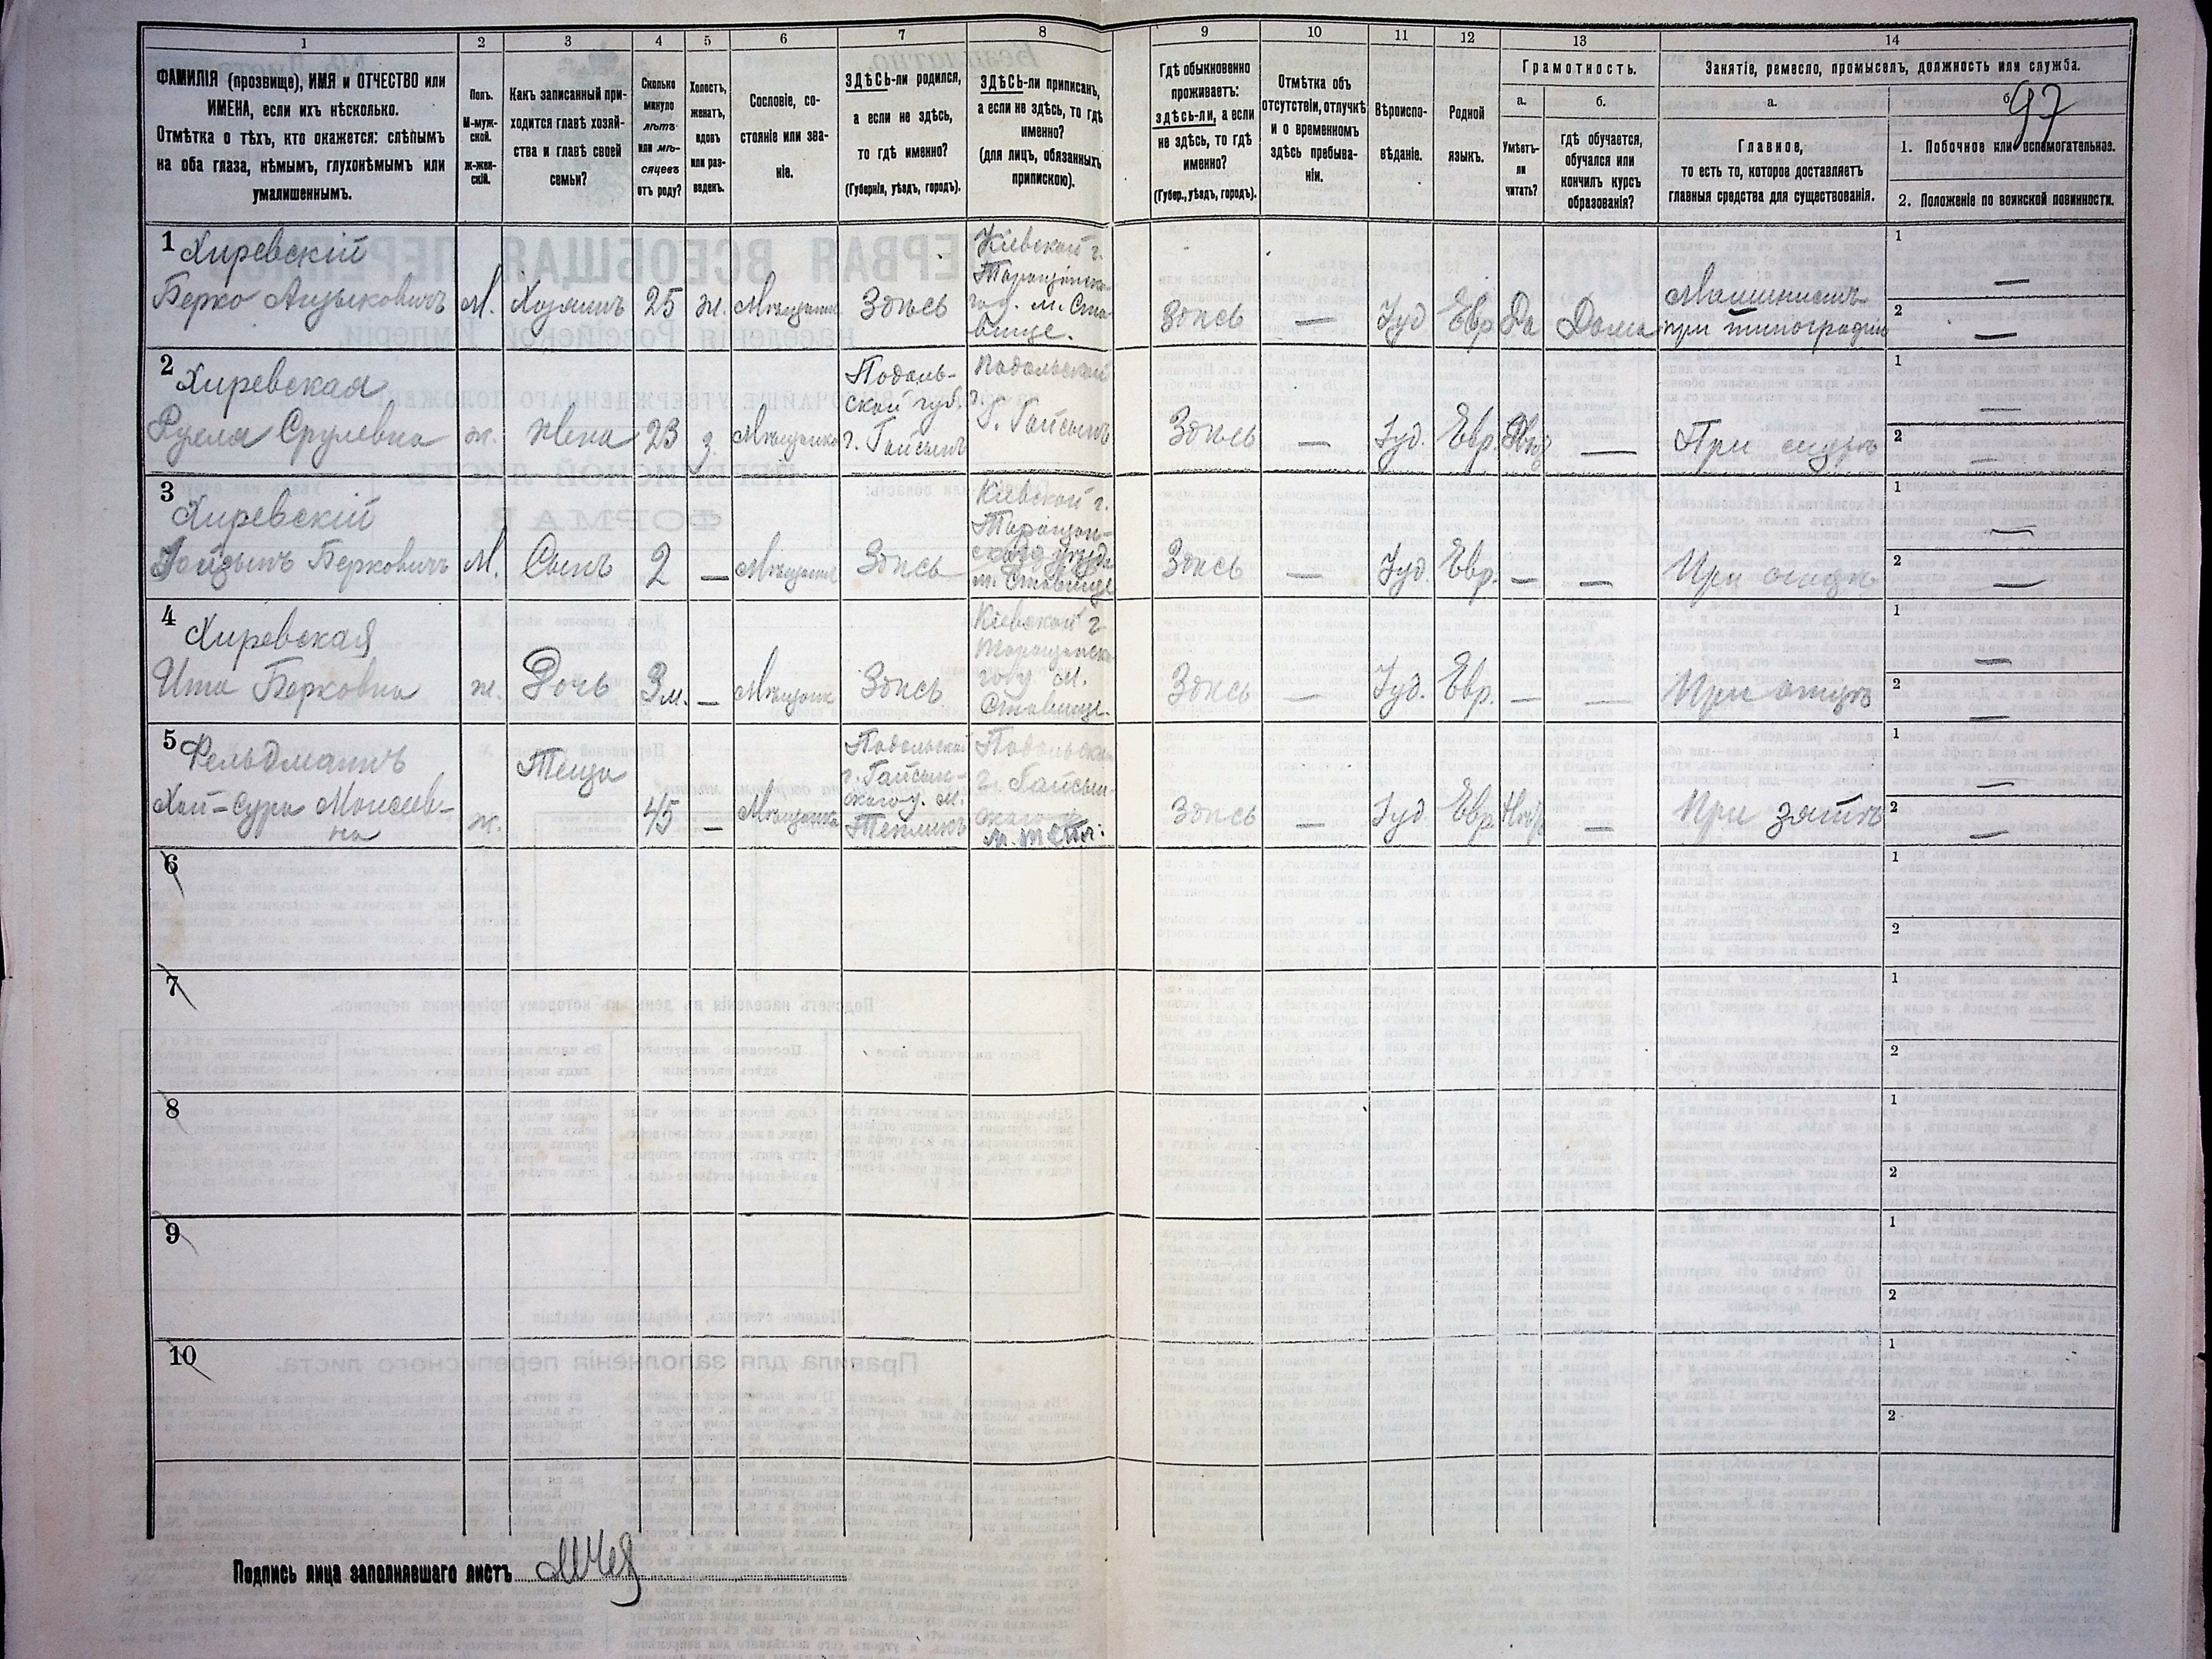 1
2
3
4
5
6
7
8
9
10
11
12
13
14
ФАМИЛІЯ (прозвище), ИМЯ и ОТЧЕСТВО или
ИМЕНА, если ихъ нѣсколько.
Отмѣтка о тѣхъ, кто окажется: слѣпымъ
на оба глаза, нѣмымъ, глухонѣмымъ или
умалишеннымъ.
Полъ.
М-муж-
ской.
ж-жен-
скій.
Какъ записанный при-
ходится главѣ хозяй-
ства и главѣ своей
семьи?
Сколько
минуло
лѣтъ
или мѣ-
сяцевъ
отъ роду?
Холостъ,
женатъ,
вдовъ
или раз-
веденъ.
Сословіе, со-
стояніе или зва-
ніе.
ЗДѢСЬ-ли родился,
а если не здѣсь,
то гдѣ именно?
(Губернія, уѣздъ, городъ).
ЗДѢСЬ-ли приписанъ,
а если не здѣсь, то гдѣ
именно?
(для лицъ, обязанныхъ
припискою).
Гдѣ обыкновенно
проживаетъ:
здѣсь-ли, а если
не здѣсь, то гдѣ
именно?
(Губер., уѣздъ, городъ).
Отмѣтка объ
отсутствіи, отлучкѣ
и о временномъ
здѣсь пребыва-
ніи.
Вѣроиспо-
вѣданіе.
Родной
языкъ.
Грамотность.
а.
Умѣетъ-
ли
читать?
б.
гдѣ обучается,
обучался или
кончилъ курсъ
образованія?
Занятіе, ремесло, промыселъ, должность или служба.
а.
Главное,
то есть то, которое доставляетъ
главныя средства для существованія.
б.
97
1. Побочное или вспомогательное.
2. Положеніе по воинской повинности.
1 Хиревскій
Берко Ицыковичъ М. Хозяинъ 25 ж. Мѣщанинъ Здѣсь
Кіевской г.
м. Ста-
вище.
Здѣсь — Іуд Евр Да Дома
Машинистъ
при типографіи
1 —
2 —
2 Хиревская
Рухля Срулевна ж. Жена 23 з. Мѣщанка
Подоль-
ской губ.
г. Гайсынъ
Подольской
г. Гайсынъ
Здѣсь — Іуд. Евр. —
При мужѣ
1 —
2 —
3 Хиревскій
Берковичъ М. Сынъ 2 — Мѣщанинъ Здѣсь
Кіевской г.
Таращан-
скаго уѣзда
м. Ставище
Здѣсь — Іуд. Евр. — —
При отцѣ
1 —
2 —
4 Хиревская
Ита Берковна ж. Дочь 3 м. — Мѣщанка Здѣсь
Кіевской г
м.
Ставище.
Здѣсь — Іуд. Евр. — —
При отцѣ
1 —
2 —
5 Фельдманъ
Хая-Сура Моисеев-
на
ж. Теща 45 — Мѣщанка
Подольской
г. Гайсын-
скаго у. м.
Тепликъ
Подольской
г. Гайсын-
скаго у.
м. Тепл.
Здѣсь — Іуд. Евр. Нѣтъ —
При зятѣ
1 —
2 —
6
1
2
7
1
2
8
1
2
9
1
2
10
1
2
Подпись лица заполнявшаго листъ